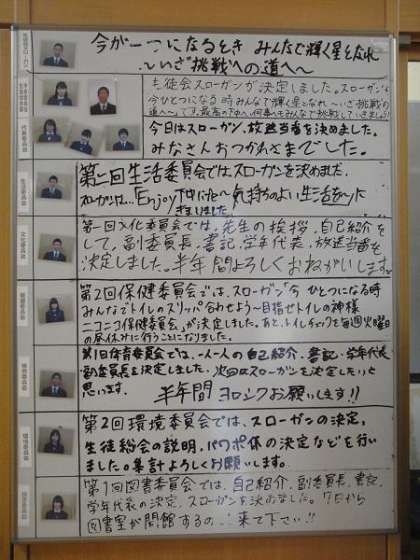 今が一つになるとき みんなで輝く星となれ
〜いざ挑戦への道へ〜
生徒会スローガンが決定しました。スローガンは
今ひとつになる時みんなで輝く星となれ〜いざ挑戦の
道へ〜です。最高の仲間と何事にもみんなで挑戦していきましょう
今日はスローガン、放送当番を決めました。
みなさんおつかれさまでした。
第一回生活委員会ではスローガンを決めました。
スローガンは…「Enjoy 仲間と〜気持ちのよい生活を〜」に
きまりました
第一回文化委員会では、先生の挨拶、自己紹介を
して、副委員長、書記、学年代表、放送当番を
決定しました。半年間よろしくおねがいします。
第2回保健委員会では、スローガン「今ひとつになる時
みんなでトイレのスリッパ合わせよう〜目指せトイレの神様
ニコニコ保健委員会」が決定しました。あと、トイレチェックを毎週火曜日
の昼休みに行うことになりました。
第1回体育委員会では、一人一人の自己紹介、書記、学年代表、
副委員長を決定しました。次回はスローガンを決定したいと
思います。 半年間ヨロシクお願いします!!
第2回環境委員会では、スローガンの決定、
生徒総会の説明、パワポ係の決定などを行い
ました。集計よろしくお願いします。
第1回図書委員会では、自己紹介、副委員長、書記、
学年代表の決定、スローガンを決めました。7日から
図書室が開館するので来て下さい!!